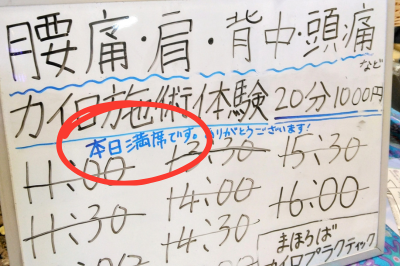 腰痛・肩・背中・頭痛
など
カイロ施術体験 20分1000円
本日満席です。ありがとうございます!
11:00 13:30 15:30
11:30 14:00 16:00
14:30
まほろば
カイロプラクティック